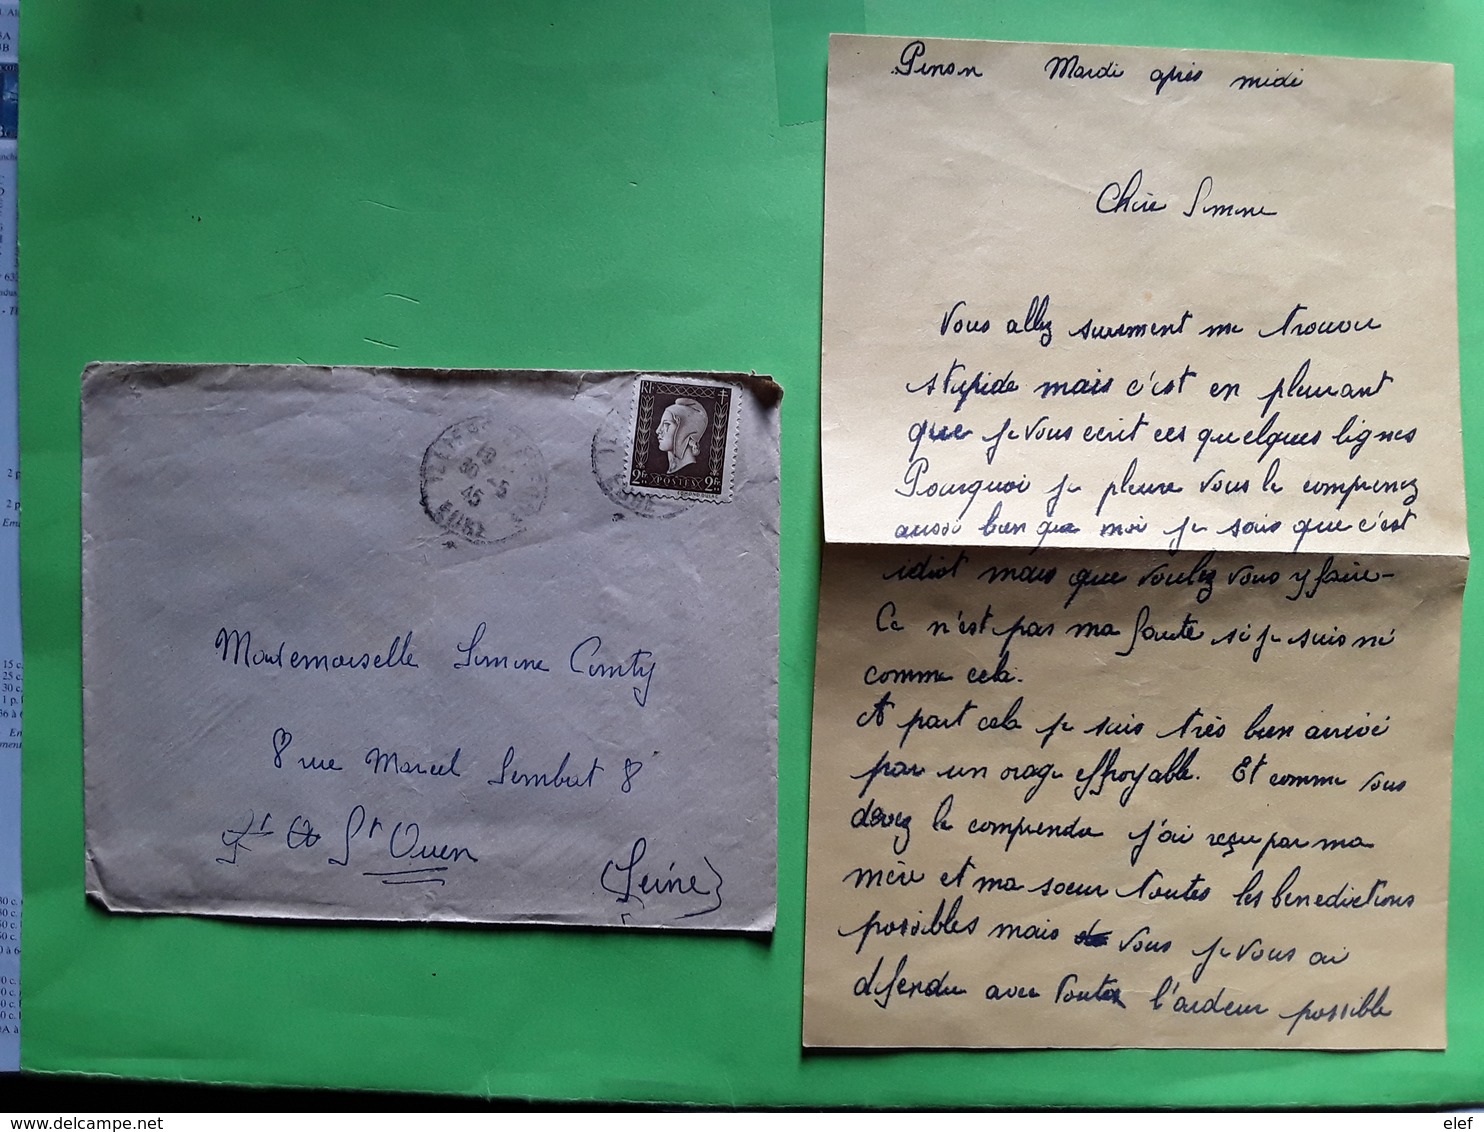 Mardi après midi
Chère Simone
Vous allez surement me trouver
stupide mais c'est en pleurant
que je vous ecrit ces quelques lignes
Pourquoi je pleure vous le comprenez
aussi bien que moi je sais que c'est
idiot mais que voulez vous y faire-
Ce n'est pas ma faute si je suis né
comme cela.
A part cela je suis très bien arrivé
par un orage effroyable. Et comme vous
devez le comprendre j'ai reçu par ma
mère et ma soeur toutes les benedictions
possibles mais vous je vous ai
defendu avec toute l'ardeur possible
RF
2F POSTES 2F
45
EURE
Mademoiselle Simone Comty
8 rue Marcel Sembat 8
St Ouen
(Seine)
15 c.
25 c.
30 c.
1 p.
2 p
2 p
delcampe.net
elef